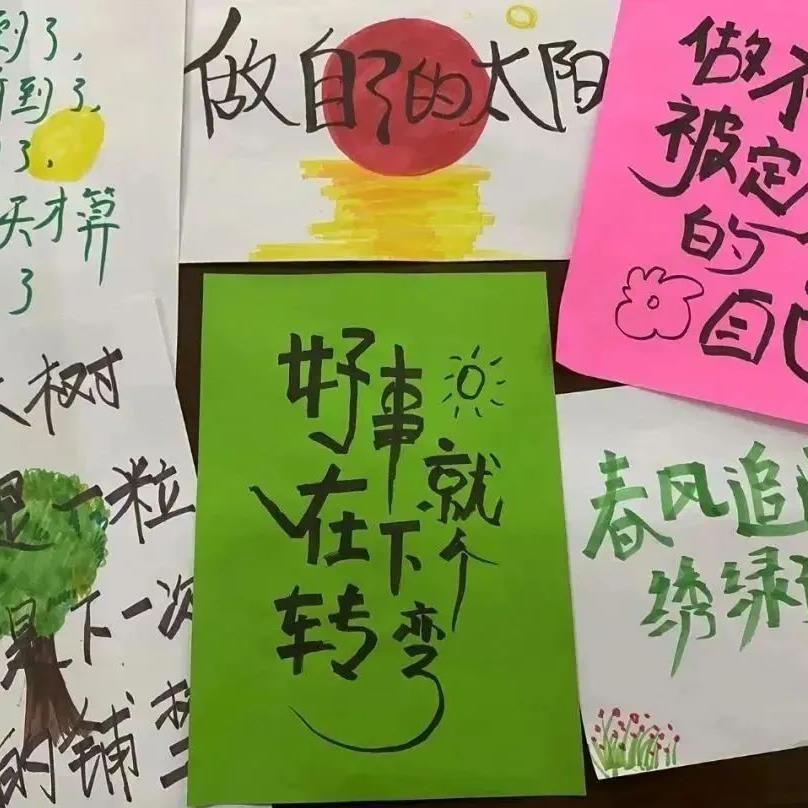 到了,
到了,
了,
才算
了
做自己的太阳
做不
被定
的
自己
树
是一粒
是下一次
的铺垫
好事
就
在下个
转弯
春风追
绣绿